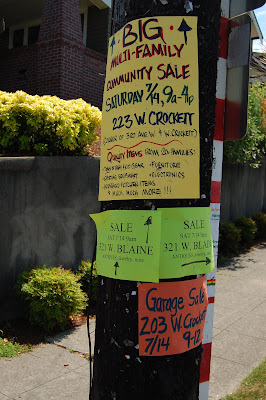 BIG
MULTI-FAMILY
COMMUNITY SALE
SATURDAY 7/14, 9a-4p
223 W. CROCKETT
(CORNER OF 3RD AVE W. & W. CROCKETT)
QUALITY ITEMS FROM 20 FAMILIES:
FURNITURE
SPORTING EQUIPMENT
ELECTRONICS
KITCHEN ITEMS
& MUCH MUCH MORE!!!!
SALE
SAT 7/14 9am
321 W. BLAINE
SALE
SAT 7/14 9am
321 W BLAINE
Garage Sale
203 W. Crockett
7/14 9-12